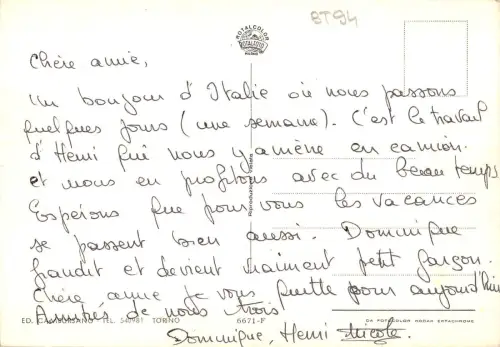 BT94
ROTALCOLOR
ROTALFOTO
MILANO
Chère amie,
Un bonjour d'Italie où nous passons
quelques jours (une semaine). C'est le travail
d'Henri qui nous y amène en camion.
et nous en profitons avec du beau temps
Espérons que pour vous les vacances
se passent bien aussi. Dominique
grandit et devient vraiment petit garçon.
Chère amie je vous quitte pour aujourd'hui
Amitiés de nous trois
Dominique, Henri Nicole.
ED. TEL. 540981 TORINO
6671-F
DA FOTOCOLOR KODAK EKTACHROME